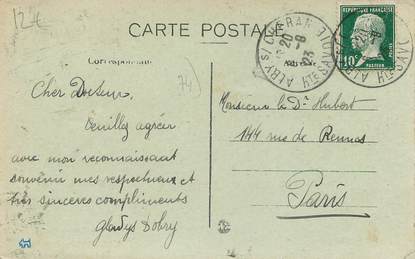 12€
CARTE POSTALE
Correspondance
74)
ALBY S/ CHERAN
20 -8
23
HTE SAVOIE
REPUBLIQUE FRANÇAISE
10c
PASTEUR
POSTES
Cher Docteur,
Veuillez agréer
avec mon reconnaissant
souvenir mes respectueux et
très sincères compliments
Gladys Dobry
Monsieur le Dr Hubert
144 rue de Rennes
Paris